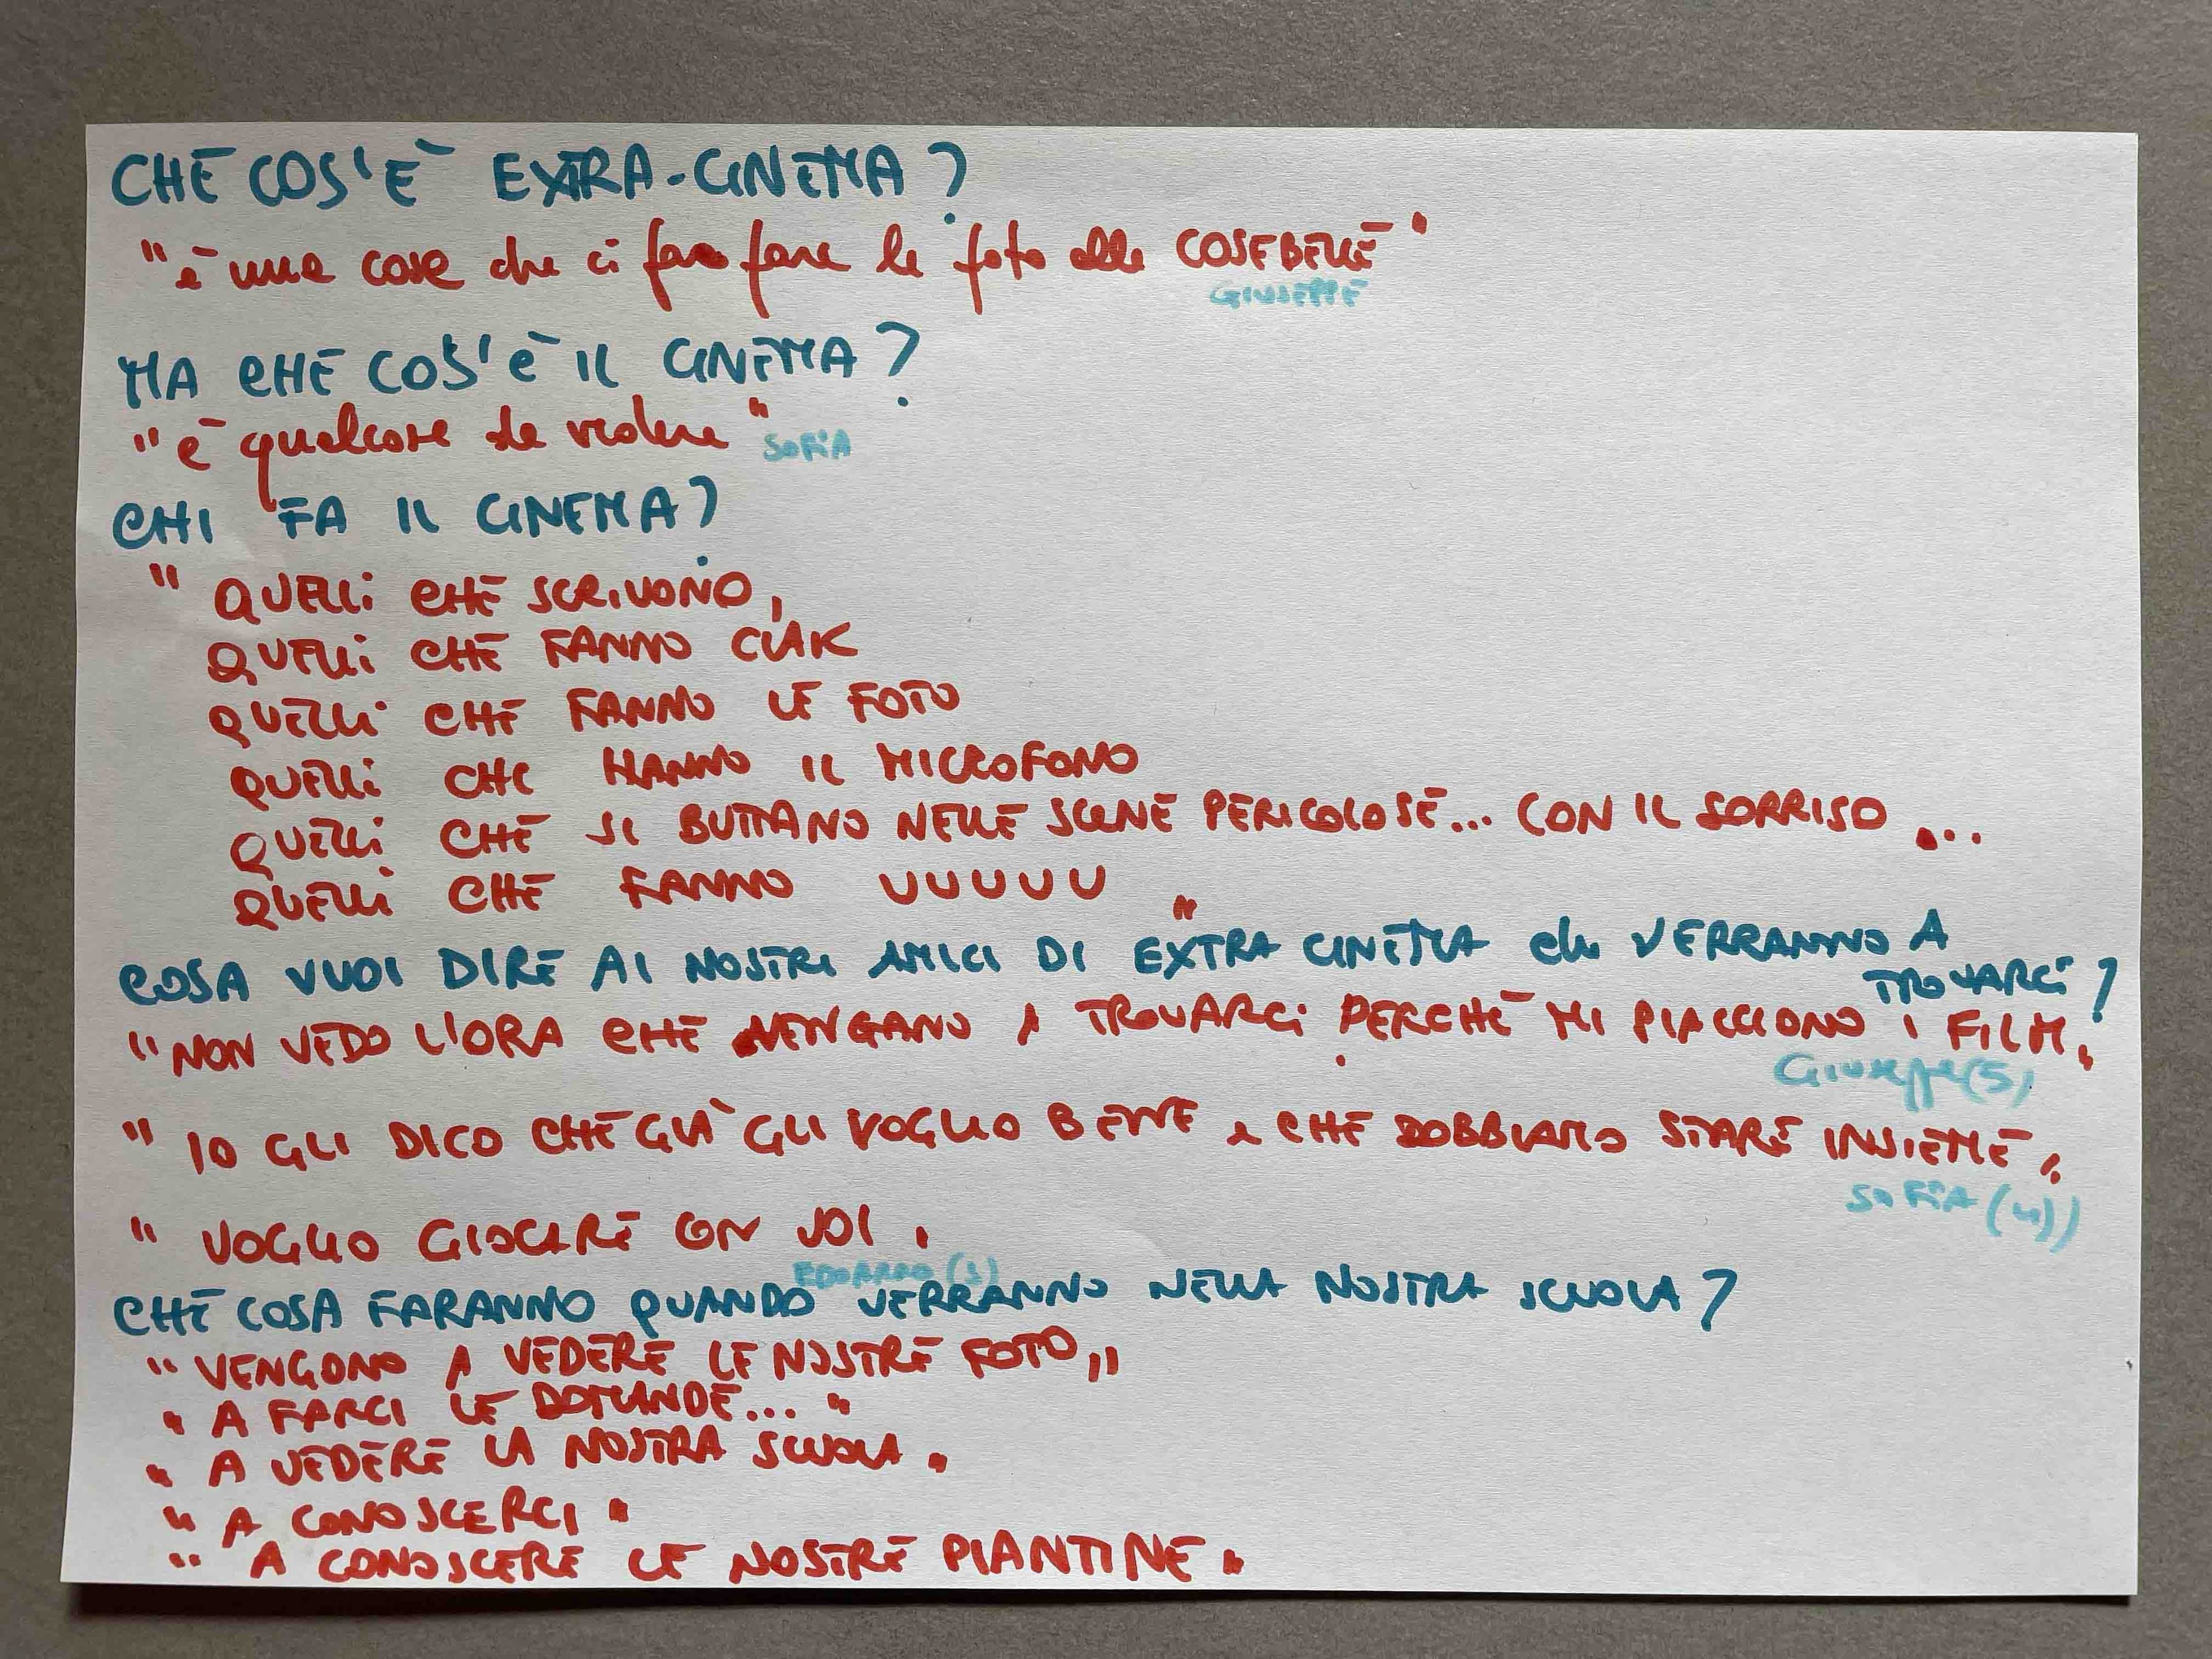 CHE COS'È EXTRA-CINEMA?
"è una cosa che ci fa fare le foto alle COSE BELLE"
GIUSEPPE
MA CHE COS'È IL CINEMA?
"è qualcosa da vedere" SOFIA
CHI FA IL CINEMA?
"QUELLI CHE SCRIVONO,
QUELLI CHE FANNO CIAK
QUELLI CHE FANNO LE FOTO
QUELLI CHE HANNO IL MICROFONO
QUELLI CHE SI BUTTANO NELLE SCENE PERICOLOSE... CON IL SORRISO...
QUELLI CHE FANNO UUUUU"
COSA VUOI DIRE AI NOSTRI AMICI DI EXTRA CINEMA che VERRANNO A
TROVARCI?
"NON VEDO L'ORA CHE VENGANO A TROVARCI PERCHÉ MI PIACCIONO I FILM"
Giuseppe (5)
"IO GLI DICO CHE GIÀ GLI VOGLIO BENE e CHE DOBBIAMO STARE INSIEME"
SOFIA (4)
"VOGLIO GIOCARE CON VOI"
EDOARDO (3)
CHE COSA FARANNO QUANDO VERRANNO NELLA NOSTRA SCUOLA?
"VENGONO A VEDERE LE NOSTRE FOTO"
"A FARCI LE DOMANDE..."
"A VEDERE LA NOSTRA SCUOLA"
"A CONOSCERCI"
"A CONOSCERE LE NOSTRE PIANTINE"